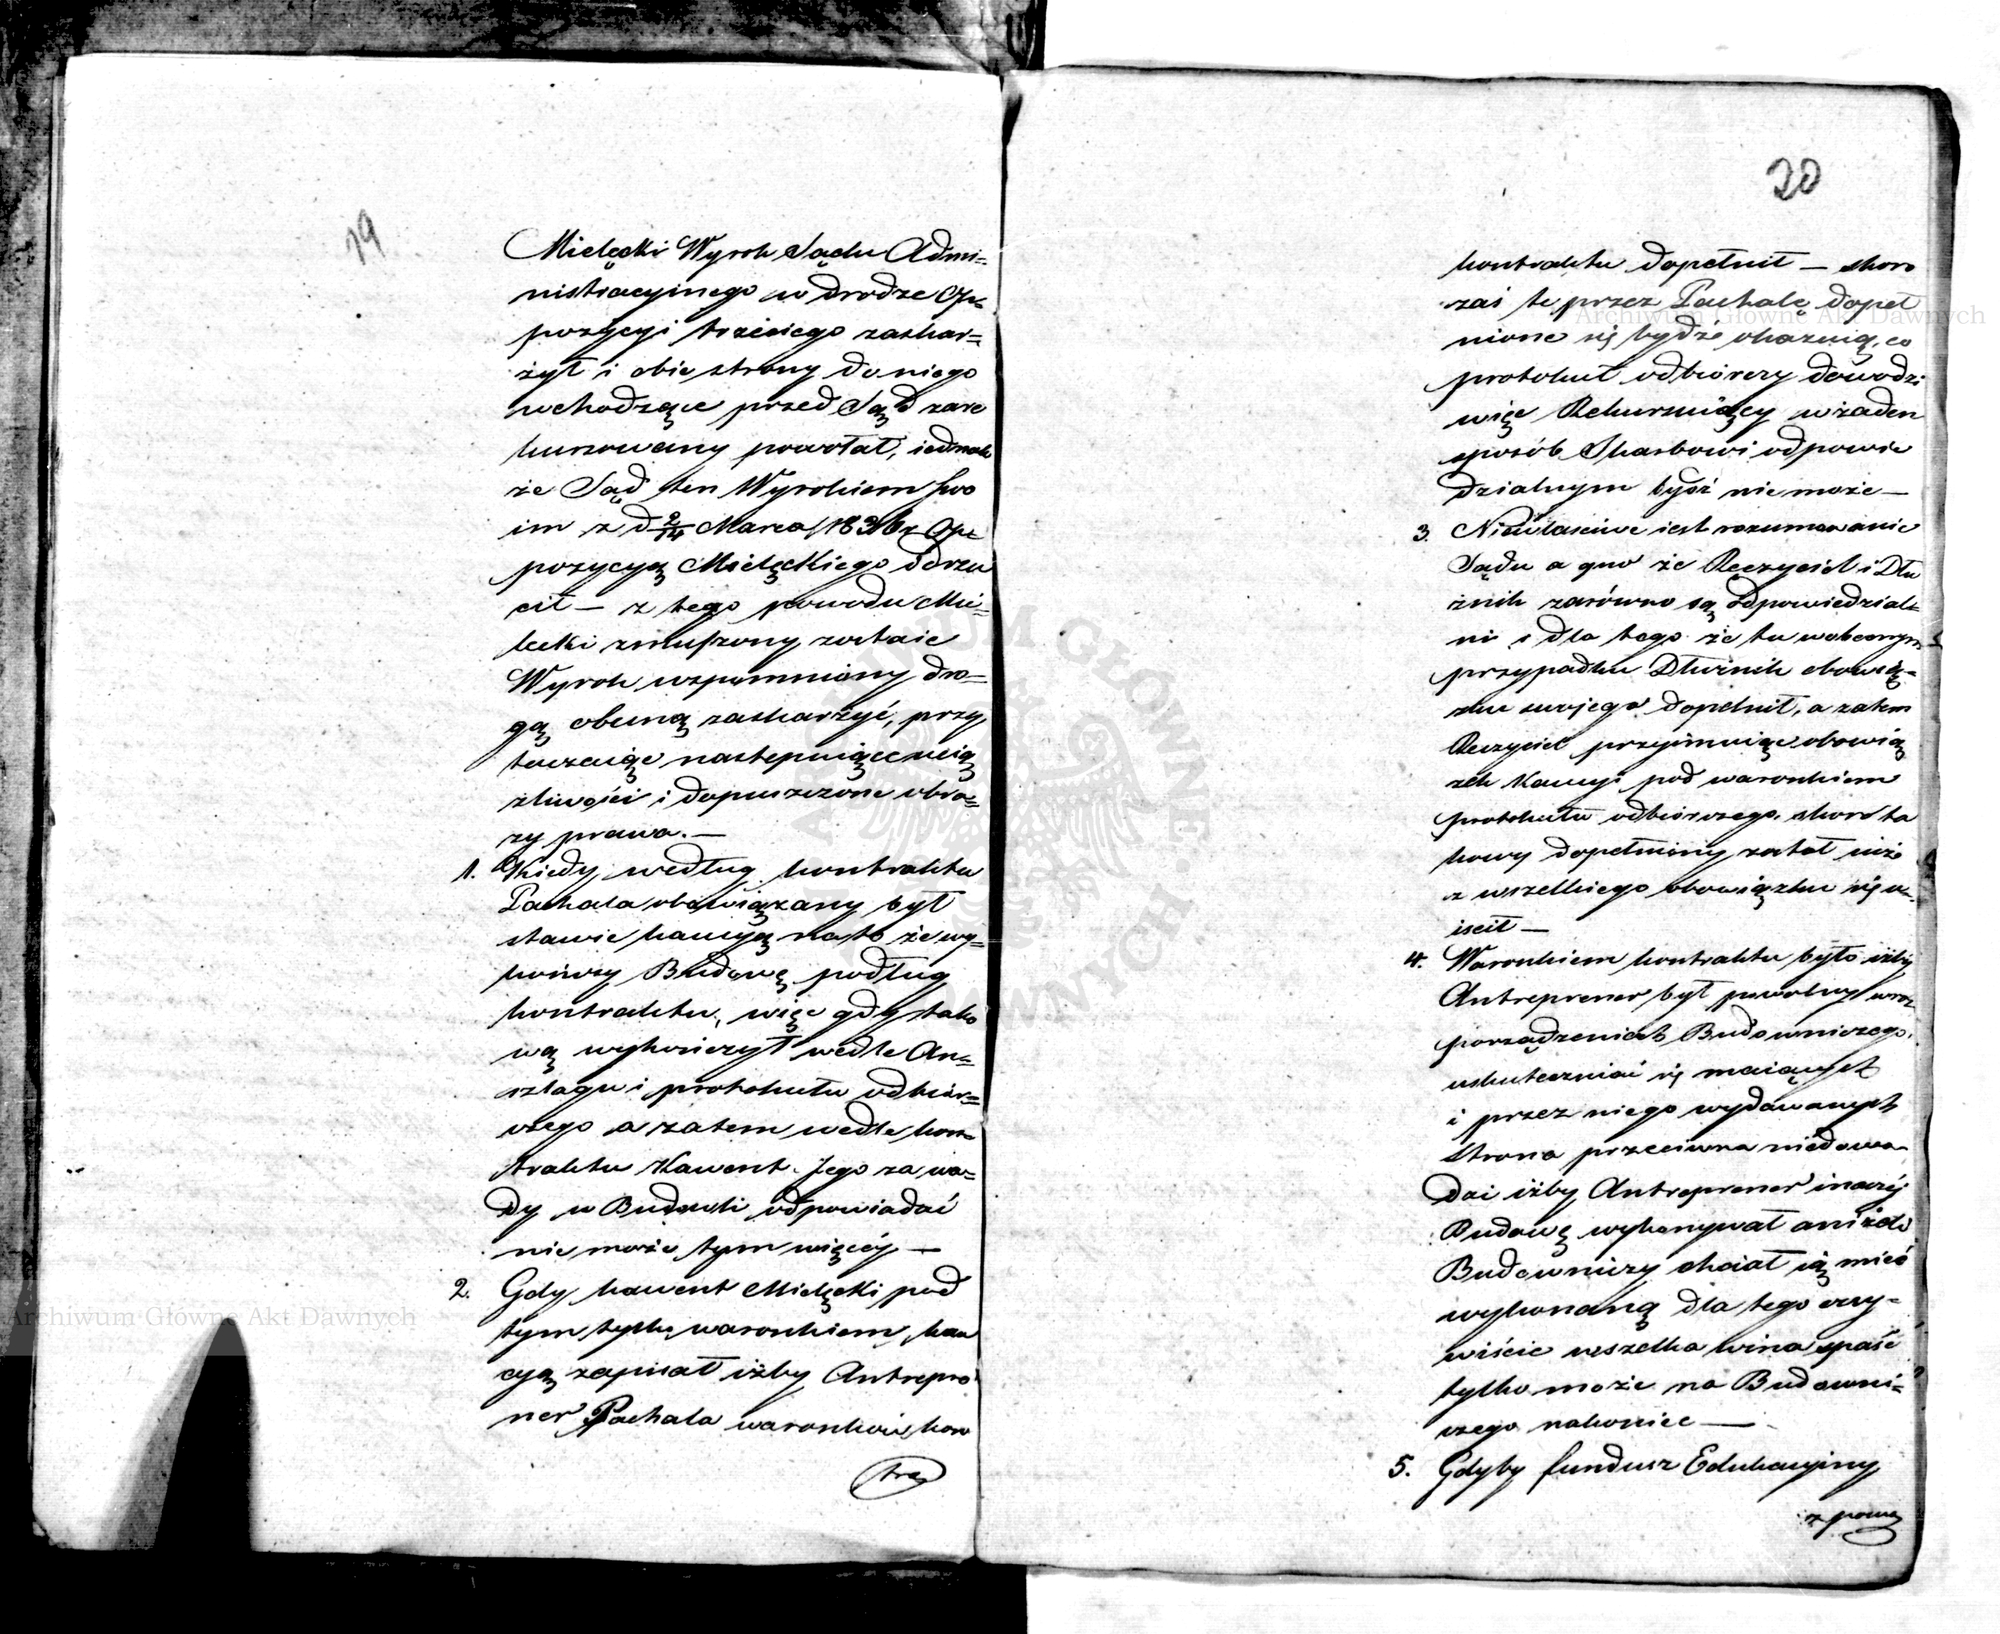 19
Mielęcki Wyrok Sądu Admi=
nistracyinego w drodze Op=
pozycyi trzeciego zaskar=
żył i obie strony do niego
wchodzące przed Sąd zare
kursowany powołał, iednak
że Sąd ten Wyrokiem swo
im z d 2/14 Marca 1836 r Op=
pozycyą Mielęckiego odrzu
cił — z tego powodu Mie=
lecki zmuszony zostaie
Wyrok wspomniony dro=
gą obecną zaskarżyć, przy
taczaiąc następuiące ucią
żliwości i dopuszczone obra=
zy prawa. —
1. Kiedy według kontraktu
Pachala obowiązany był
stawić kaucyą na to że wy=
kończy Budowę podług
kontraktu, więc gdy tako
wą wykończył wedle An=
szlagu i protokułu odbior=
czego a zatem wedle kon=
traktu Kawent Jego za wa=
dy w Budowli odpowiadać
nie może tym więcéy —
2. Gdy kawent Mielęcki pod
tym tylko warunkiem kau
cyą zapisał iżby Antrepre
ner Pachala warunków kon
tra
20
kontraktu dopełnił — skoro
zaś te przez Pachalę dopeł
nione się bydź okazuią, co
protokuł odbiorczy dowodzi
więc Rekursuiący w żaden
sposób Skarbowi odpowie
dzialnym bydź nie może —
3. Niewłaściwe iest rozumowanie
Sądu a quo że Ręczyciel i Dłu
żnik zarówno są odpowiedzial=
ni i dla tego że tu w obecnym
przypadku Dłużnik obowią=
zku swojego dopełnił, a zatem
Ręczyciel przyimuiąc obowią
zek Kaucyi pod warunkiem
protokułu odbiorczego, skoro ta
kowy dopełniony został iuż
z wszelkiego obowiązku się u=
iścił —
4. Warunkiem kontraktu było iżby
Antreprener był powolny w roz
porządzeniach Budowniczego,
uskuteczniać się maiących
i przez niego wydawanych
Strona przeciwna niedowo=
dzi iżby Antreprener inaczéj
Budowę wykonywał aniżeli
Budowniczy chciał ią mieć
wykonaną dla tego oczy=
wiście wszelka wina spaść
tylko może na Budowni=
czego nakoniec —
5. Gdyby fundusz Edukacyiny
z powo
Archiwum Główne Akt Dawnych